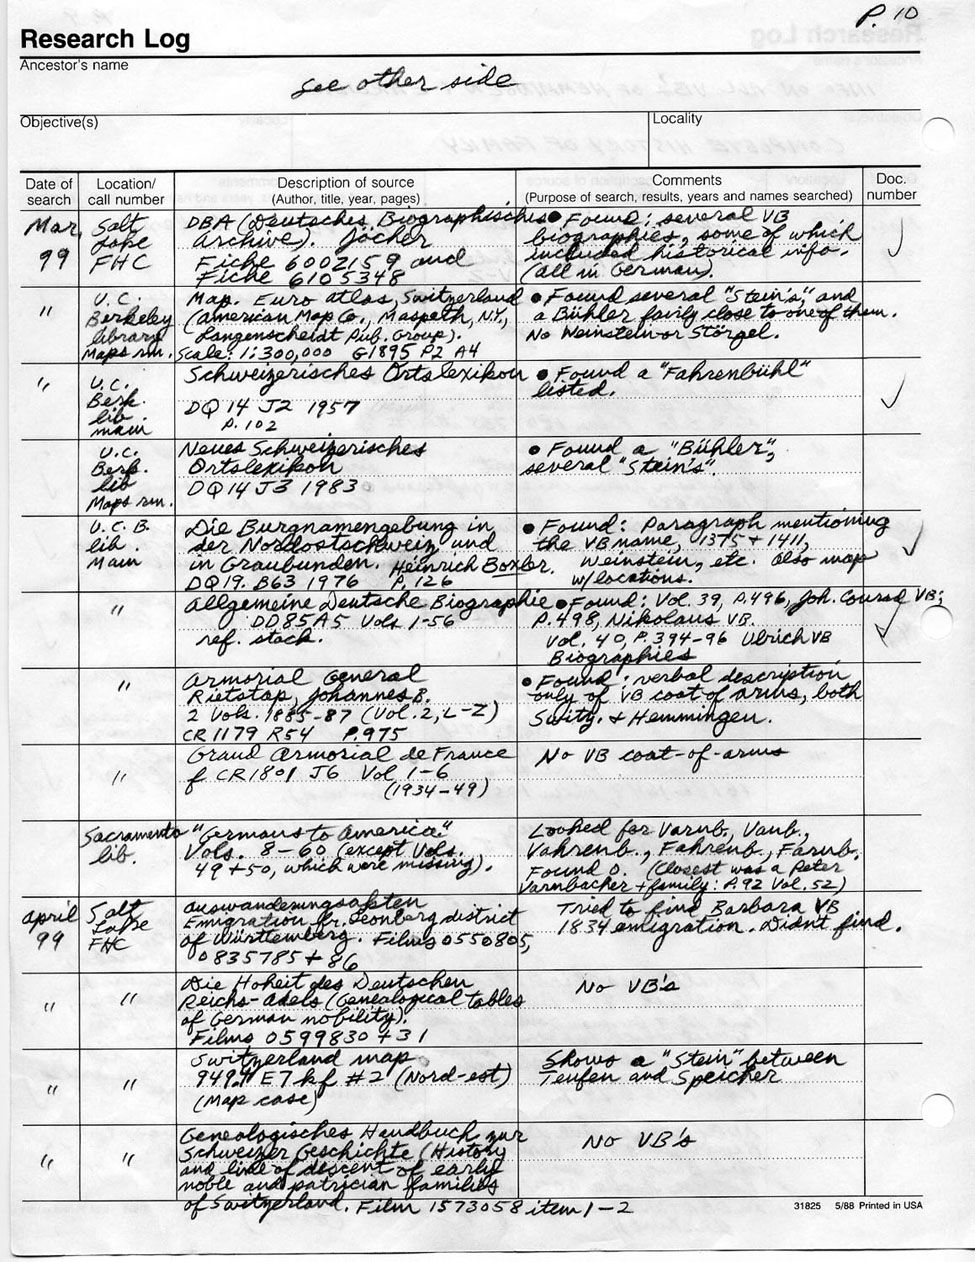 P. 10
Research Log
Ancestor's name
See other side
Objective(s)
Locality
Date of search
Location/ call number
Description of source
(Author, title, year, pages)
Comments
(Purpose of search, results, years and names searched)
Doc. number
Mar, 99
Salt
Lake
FHC
DBA (Deutsches Biographisches
Archive). Jöcher
Fiche 6002159 and
Fiche 6105348
• Found: several VB
biographies, some of which
included historical info.
(all in German).
"
U.C.
Berkeley
library
Maps rm.
Map. Euro atlas, Switzerland
(American Map Co., Maspeth, NY,
Langenscheidt Pub. Group).
Scale: 1:300,000 G1895 P2 A4
• Found several "Stein's", and
a Bühler fairly close to one of them.
No Weinstein or Störgel.
"
U.C.
Berk.
lib.
main
Schweizerisches Ortslexikon
DQ 14 J2 1957
p. 102
• Found a "Fahrenbühl"
listed.
U.C.
Berk.
lib
Maps rm.
Neues Schweizerisches
Ortslexikon
DQ 14 J3 1983
• Found a "Bühler",
several "Stein's".
U.C.B.
lib.
Main
Die Burgnamengebung in
der Nordostschweiz und
in Graubunden. Heinrich Boxler.
DQ19. B63 1976 P. 126
• Found: Paragraph mentioning
the VB name, 1375 + 1411,
Weinstein, etc. Also map
w/locations.
"
Allgemeine Deutsche Biographie
DD85A5 Vols 1-56
ref. stack.
• Found: Vol. 39, P.496, Joh. Conrad VB;
P.498, Nikolaus VB.
Vol. 40, P. 394-96 Ulrich VB
Biographies
"
Armorial General
Rietstap, Johannes B.
2 Vols. 1885-87 (Vol. 2, L-Z)
CR1179 R54 P.975
• Found: verbal description
only of VB coat of arms, both
Switz. + Hemmingen.
"
Grand Armorial de France
f CR1801 J6 Vol 1-6
(1934-49)
No VB coat-of-arms
Sacramento
lib.
"Germans to America"
Vols. 8-60 (except Vols.
49 + 50, which were missing).
Looked for Varnb., Vanb.,
Vahrenb., Fahrenb., Farnb.
Found 0. (Closest was a Peter
Varnbacher + family: P.92 Vol. 52)
April 99
Salt
Lake
FHC
Auswanderungsakten
Emigration fr. Leonberg district
of Württemberg. Films 0550805,
0835785 + 86
Tried to find Barbara VB
1834 emigration. Didn't find.
"
"
Die Hoheit des Deutschen
Reichs-Adels (Genealogical tables
of German nobility).
Films 0599830 + 31
No VB's
"
"
Switzerland map
949.4 E7 kf #2 (Nord-est)
(Map case)
Shows a "Stein" between
Teufen and Speicher
"
"
Genealogisches Handbuch zur
Schweizer Geschichte (History
and line of descent of early
noble and patrician families
of Switzerland. Film 1573058 item 1-2
No VB's
31825 5/88 Printed in USA